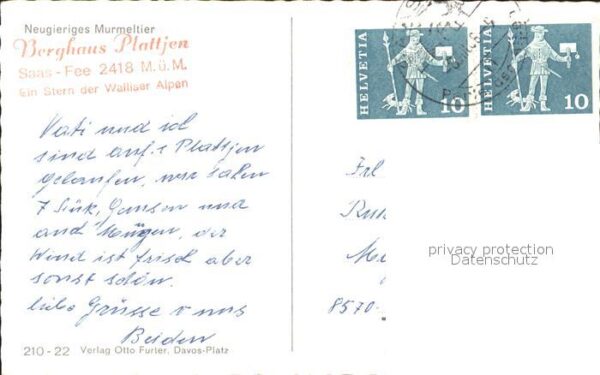 Neugieriges Murmeltier
Berghaus Plattjen
Saas-Fee 2418 M.ü.M.
Ein Stern der Walliser Alpen
HELVETIA 10
HELVETIA 10
Vati und ich
sind auf's Plattjen
gelaufen, wir sahen
7 Stück, Gemsen und
und, der
Wind ist frisch aber
sonst schön.
liebe Grüsse v uns
Beiden
Frl
8570-
privacy protection
Datenschutz
210-22 Verlag Otto Furter, Davos-Platz